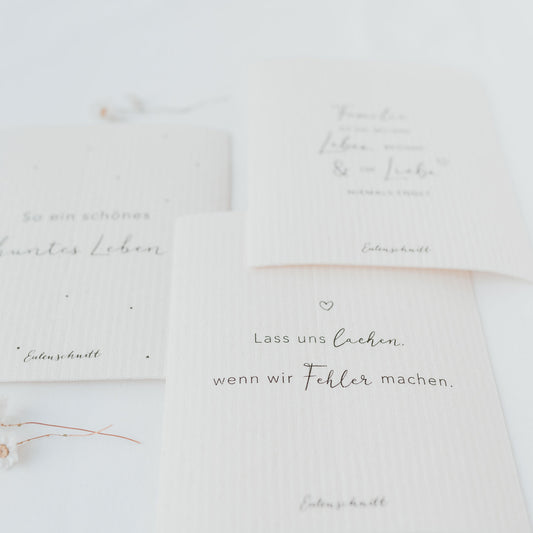 Familie
wo das Leben beginnt
& die Liebe
niemals endet
Eulenschnitt
So ein schönes
buntes Leben
Eulenschnitt
Lass uns lachen,
wenn wir Fehler machen.
Eulenschnitt